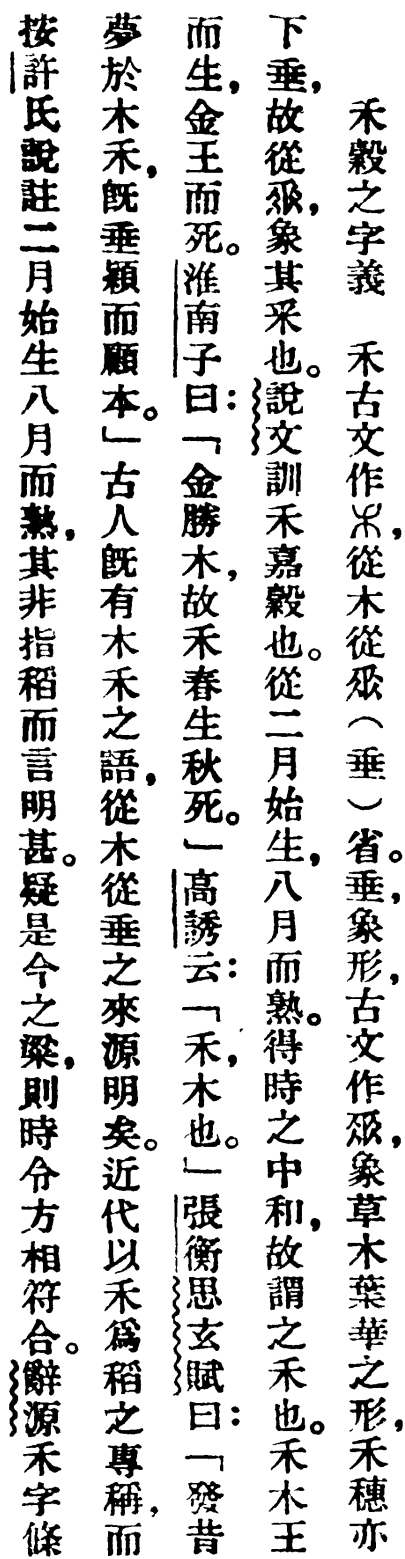 禾穀之字義　禾古文作𥝌，從木從𠂹（垂）省。垂，象形，古文作𠂹，象草木葉華之形，禾穗亦
下垂，故從𠂹，象其采也。說文訓禾嘉穀也。從二月始生，八月而熟。得時之中和，故謂之禾也。禾木王
而生，金王而死。淮南子曰：「金勝木，故禾春生秋死。」高誘云：「禾，木也。」張衡思玄賦曰：「發昔
夢於木禾，既垂穎而顧本。」古人既有木禾之語，從木從垂之來源明矣。近代以禾爲稻之專稱，而
按許氏說註二月始生八月而熟，其非指稻而言明甚。疑是今之粱，則時令方相符合。辭源禾字條